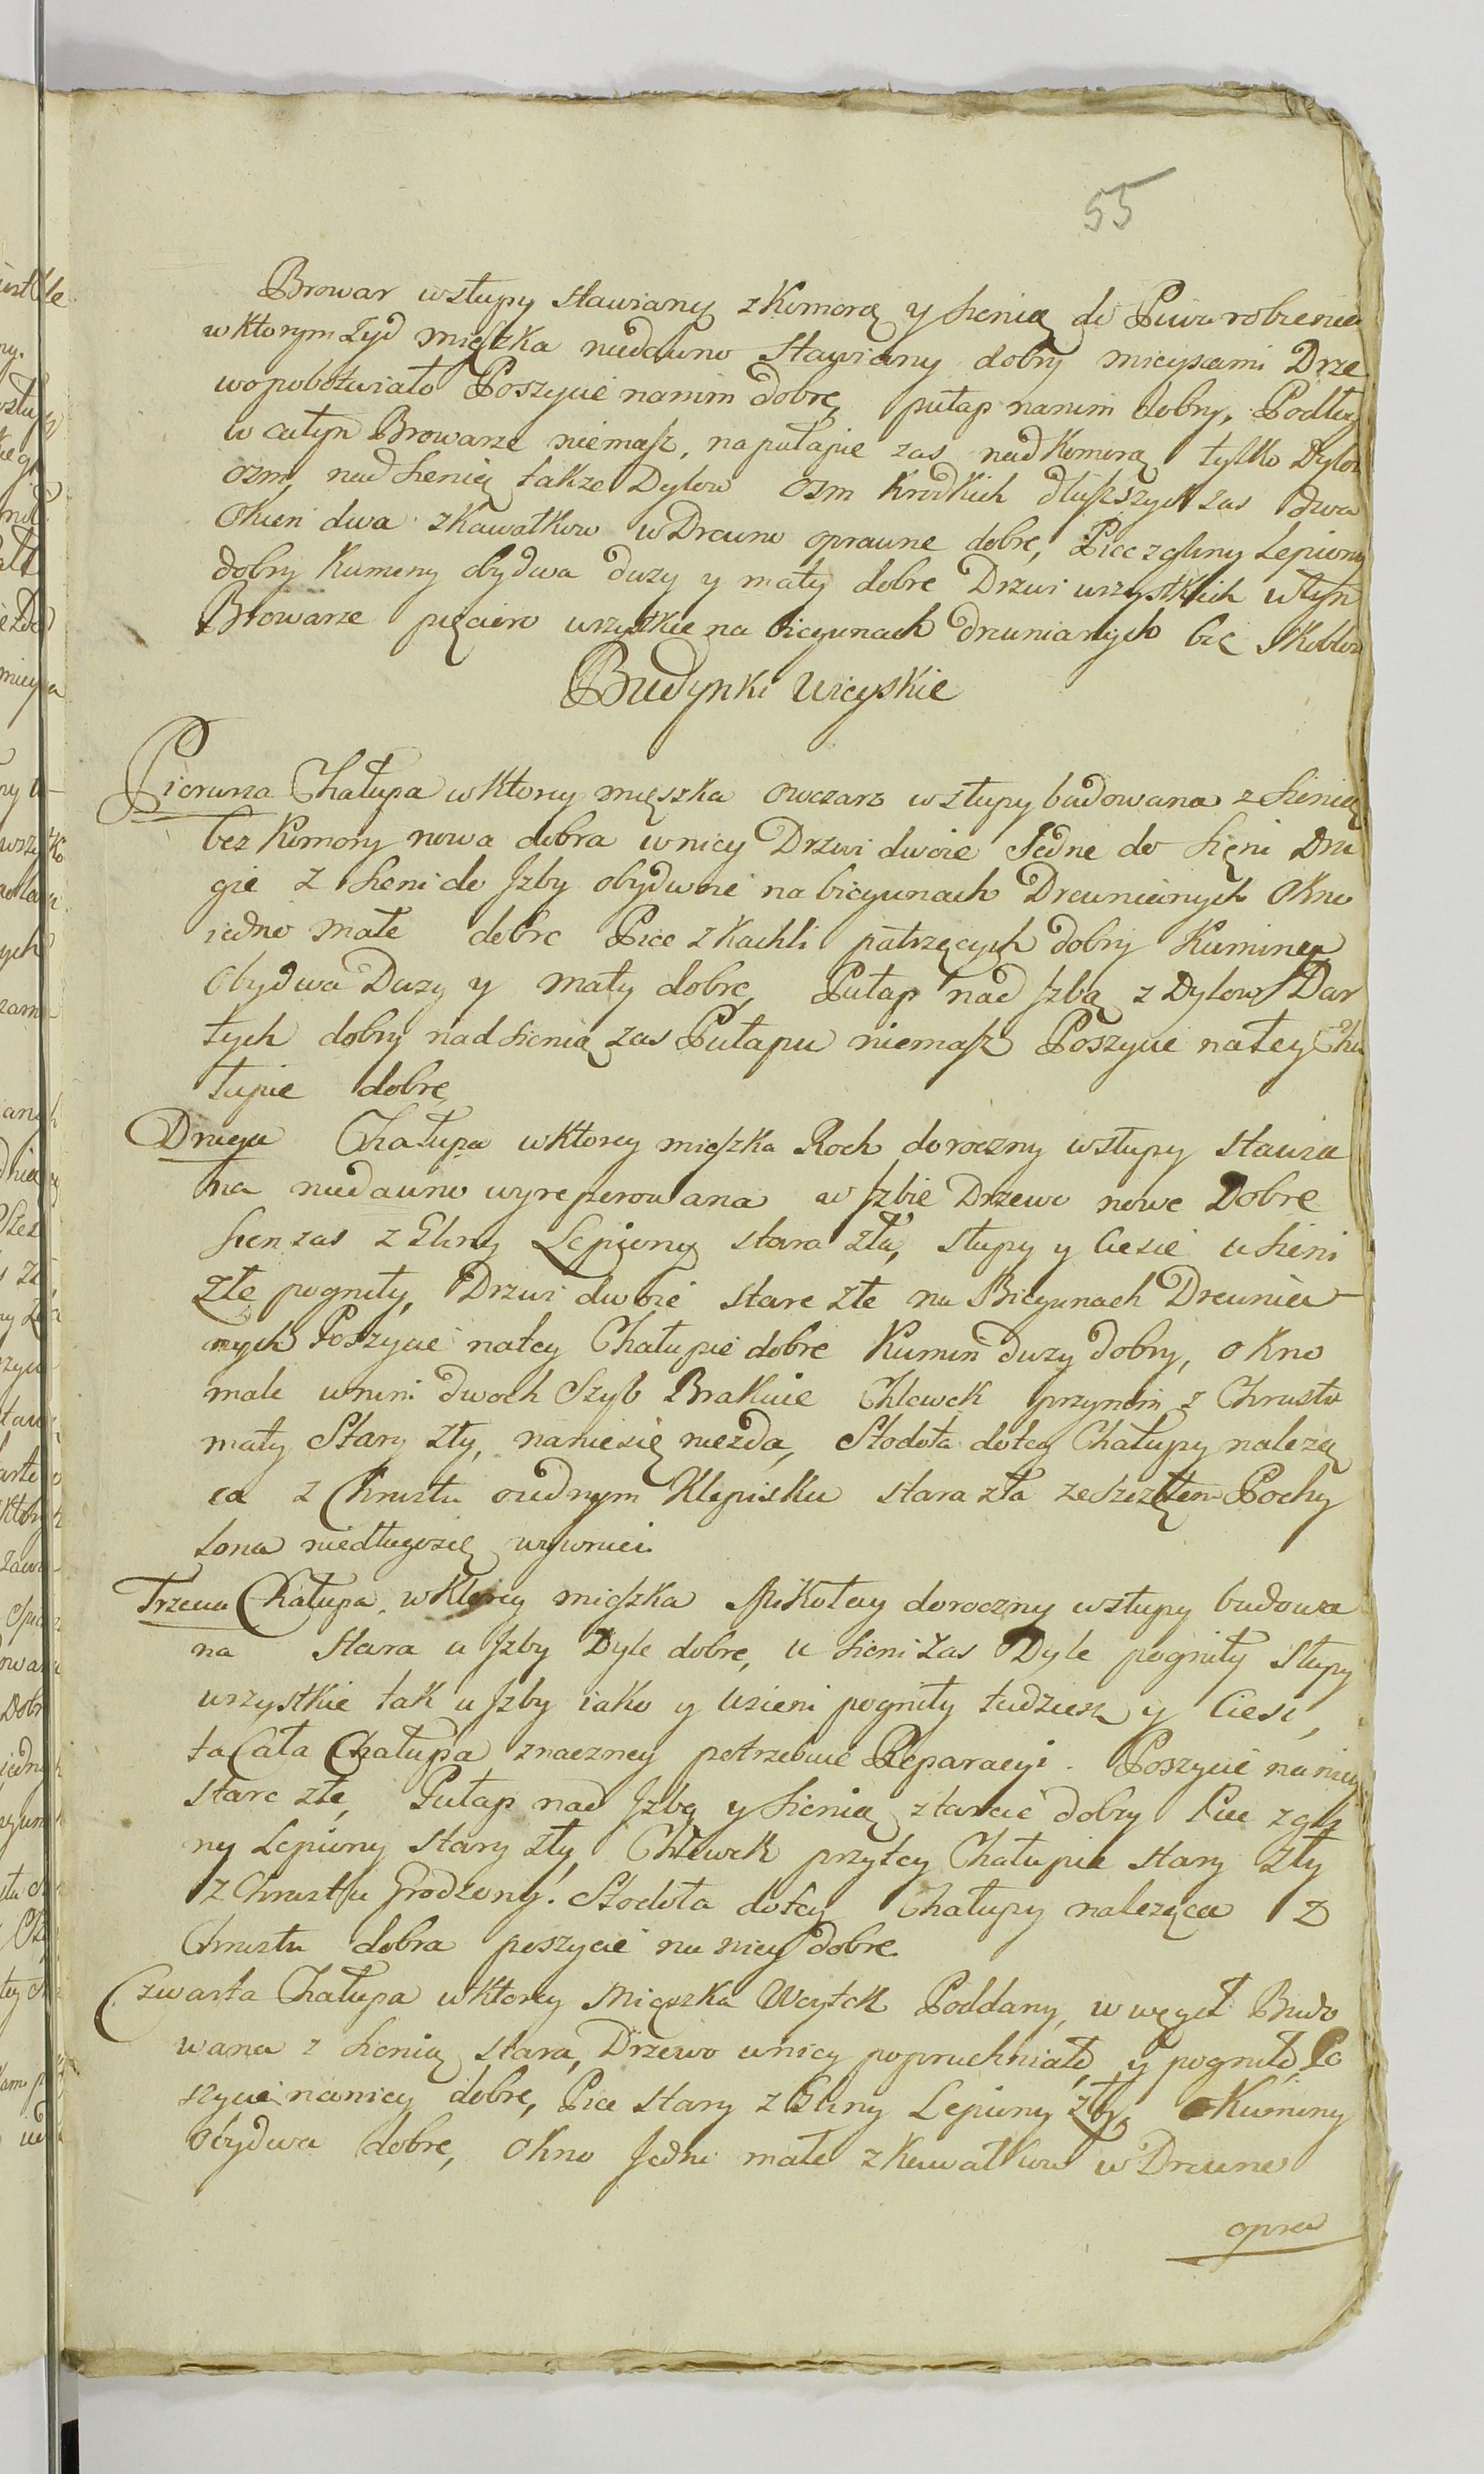 55
Browar wstupy stawiany z Komorą y Sienią do Piwa robienia
w ktorym Zyd mięszka niedawno stawiany dobry mieyscami Drze
wo pobótwiało Poszycie nanim dobre, pułap nanim dobry, Podłog
w całym Browarze niemasz, na pułapie zas nad Komorą tylko Dylow
osm, nad Sienią takze Dylow osm krodkich dłuszszych zas dwa
Okien dwa z kawałkow w Drewno oprawne dobre, Piec z gliny Lepiony
dobry Kumeny obydwa duzy y mały dobre Drzwi wszystkich w tym
Browarze pięcioro wszystkie na biegunach drewnianych bez skoblow
Budynki Wieyskie
Pierwsza Chałupa w ktorey mięszka Owczarz w słupy budowana z Sienią
bez Komory nowa dobra w niey Drzwi dwoie Jedne do Sięni Dru
gie z Sieni do Jzby obydwoie na biegunach Drewnianych Okno
iedno małe dobre Piec z Kachli patrzących dobry Kuminy
Obydwa Duzy y mały dobre, Pułap nad Jzbą z Dylow Dar
tych dobry nad Sienią zas Pułapu niemasz Poszycie na tey Cha
łupie dobre
Druga Chałupa w ktorey mieszka Roch doroczny w słupy stawia
na niedawno wyreperowana w Jzbie Drzewo nowe Dobre
Sien zas z Gliny Lepiony stara zła, słupy y Ciesie u Sieni
złe pogniły, Drzwi dwoie stare złe na Biegunach Drewnia
nych Poszycie na tey Chałupie dobre Kumin duzy dobry, okno
małe w nim dwoch Szyb Brakuie Chlewek przynim z Chrustu
mały Stary zły, naniesię niezda, Stodoła do tey Chałupy nalezą
ca z Chrustu o iednym Klepisku stara zła ze szczętem Pochy
lona niedługo się wywruci.
Trzecia Chałupa w ktorey mieszka Mikołay doroczny w słupy budowa
na Stara u Jzby Dyle dobre, u Sieni Zas Dyle pogniły Słupy
wszystkie tak u Jzby iako y Usieni pogniły tudziesz y Ciesi,
ta Cała Chałupa znaczney potrzebuie Reparacyi. Poszycie na niey
stare złe, Pułap nad Jzbą y Sienią z tarcic dobry Piec z gli
ny Lepiony stary zły, Chlewek przytey Chałupie stary zły
z Chrustu Grodzony. Stodoła do tey Chałupy naleząca Z
Chrustu dobra poszycie na niey dobre.
Czwarta Chałupa w ktorey Mięszka Woytek Poddany, w węgeł Budo
wana z Sienią stara, Drzewo w niey popruchniałe, y pogniłe, Po
szycie na niey dobre, Piec stary z Gliny Lepiony zły, Kuminy
Obydwa dobre, Okno Jedno małe z kawałkow w Drewno
opra